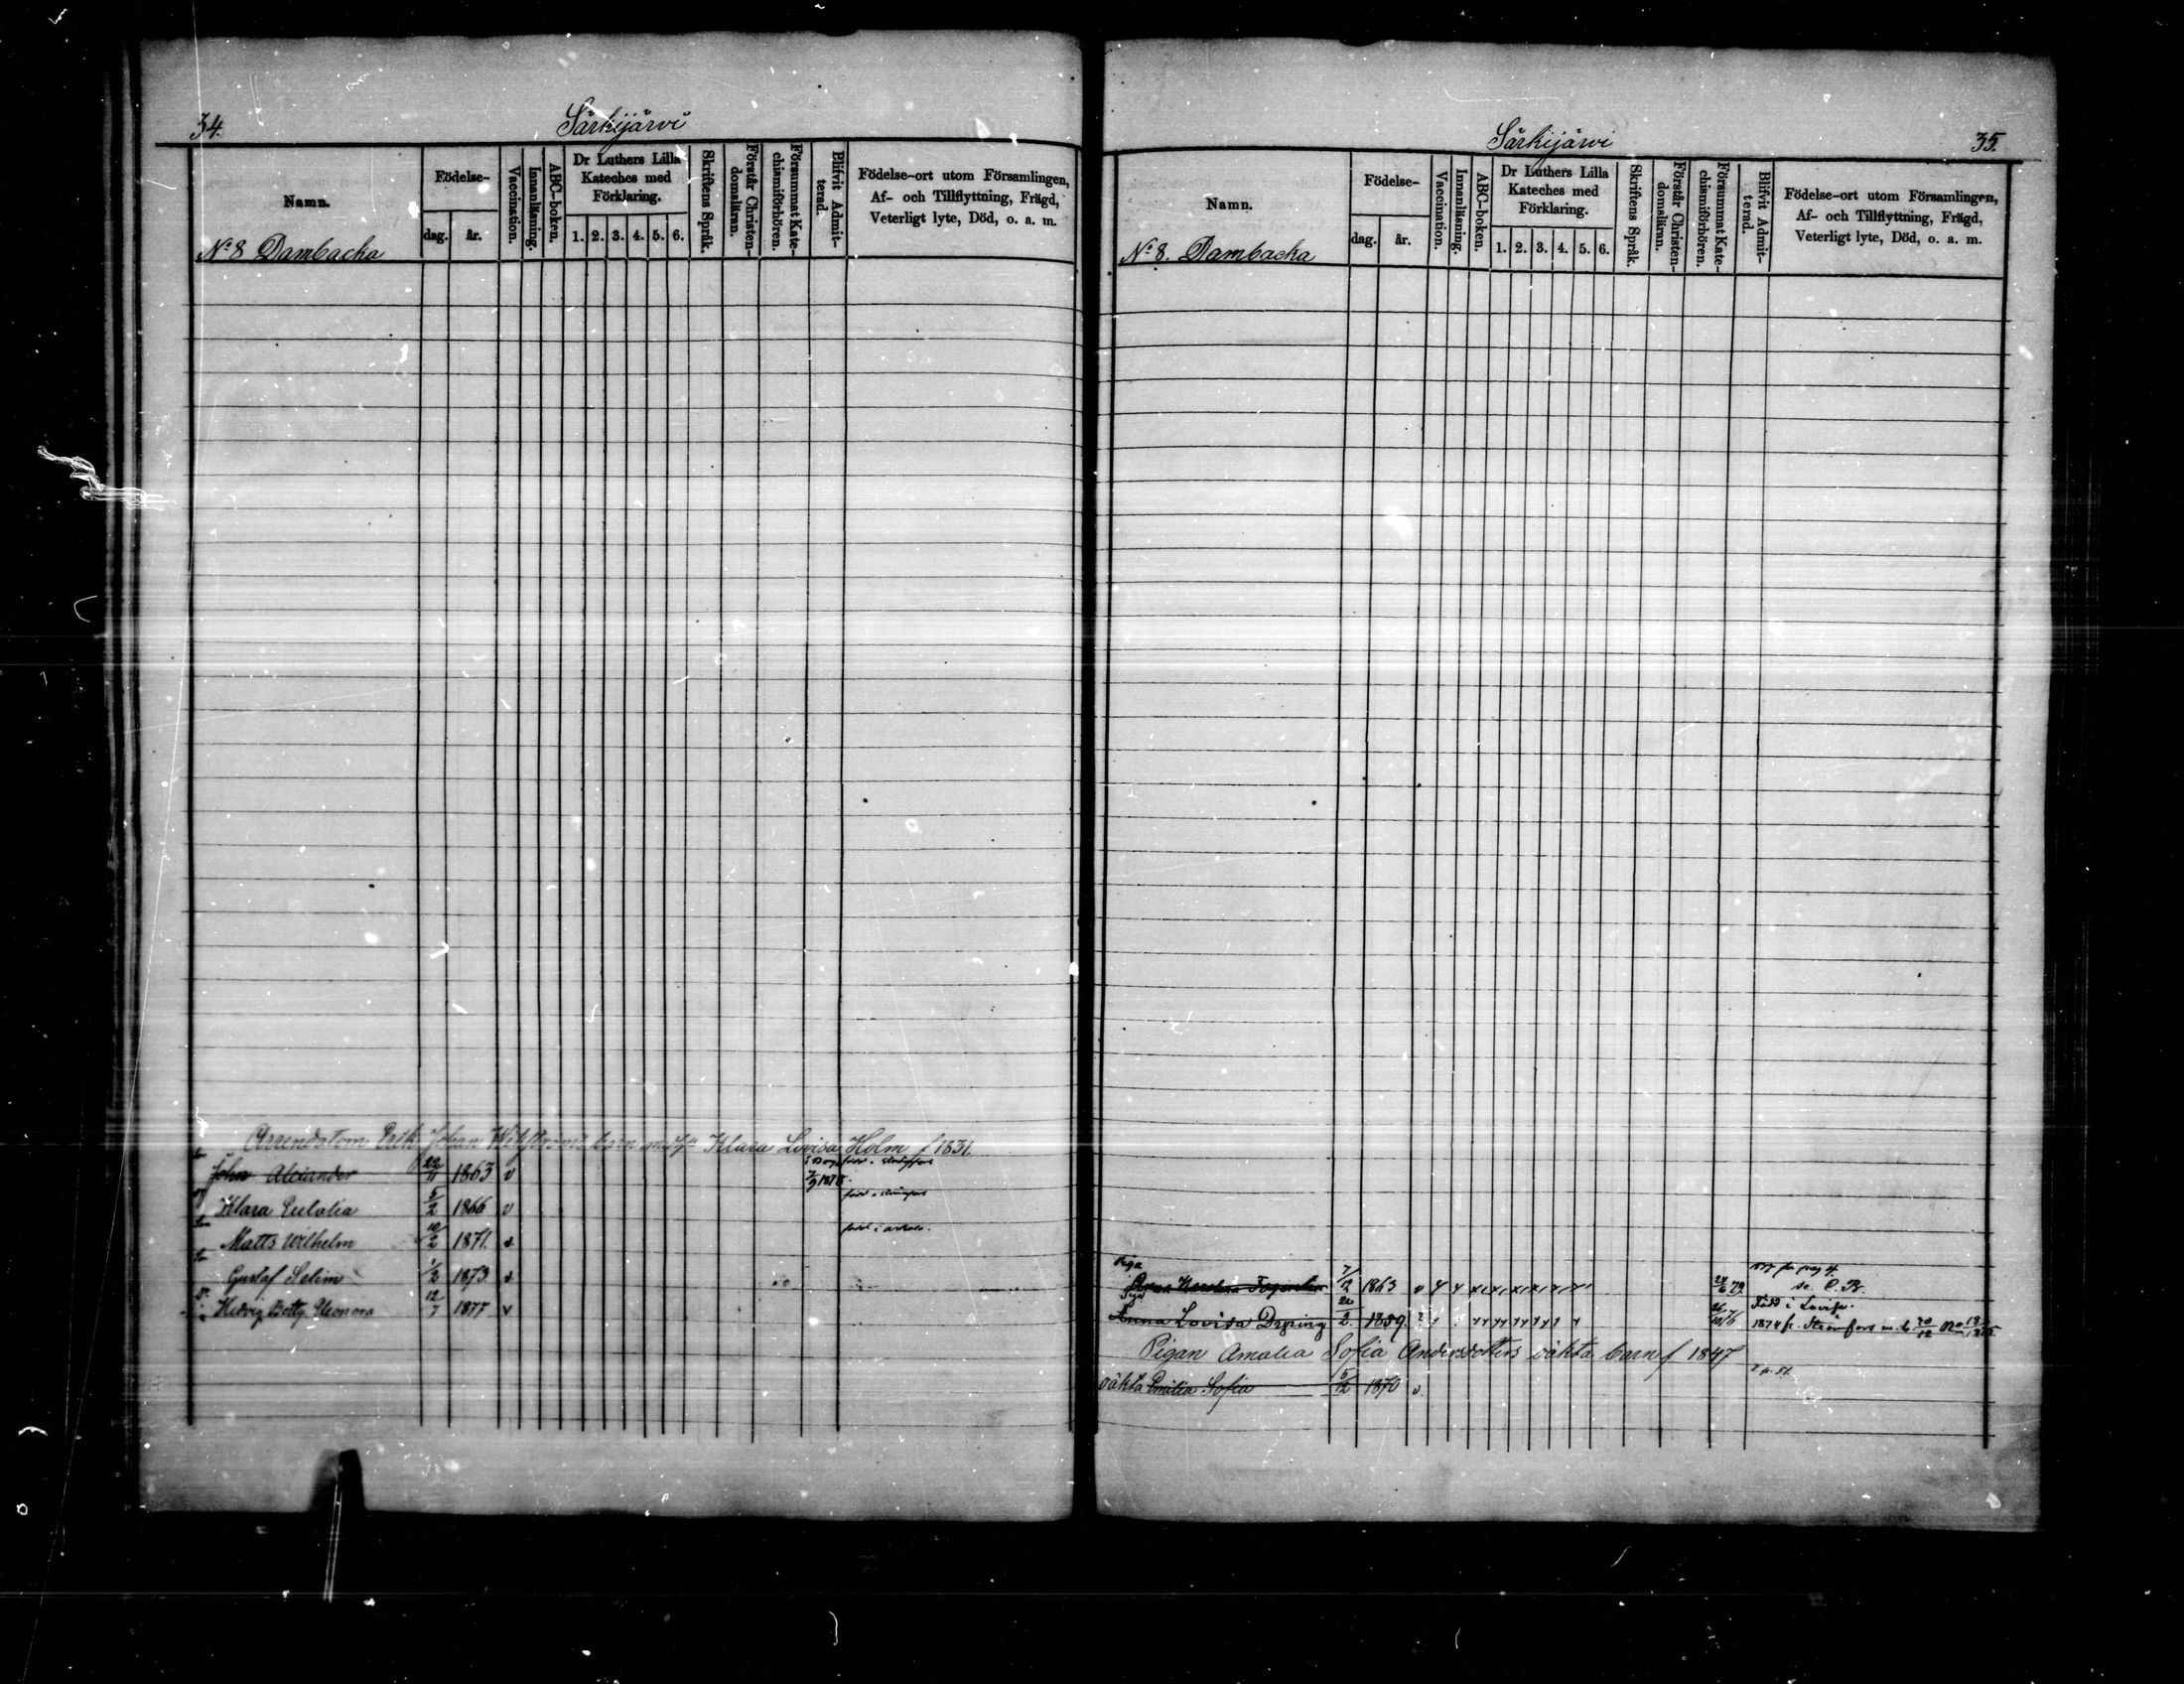 34.
Särkijärvi
Namn.
Födelse-
dag.
år.
Vaccination.
Innanläsning.
ABC-boken.
Dr Luthers Lilla
Kateches med
Förklaring.
1. 2. 3. 4. 5. 6.
Skriftens Språk.
Förstår Christen-
domsläran.
Försummat Kate-
chismiförhören.
Blifvit Admit-
terad.
Födelse-ort utom Församlingen,
Af- och Tillflyttning, Frägd,
Veterligt lyte, Död, o. a. m.
No 8 Dambacka
Arrendatorn Erik Johan barn med Klara Lovisa Holm f 1831.
John Alexander 22/11 1863 v
Klara Eulalia 5/2 1866 v
Matts Wilhelm 10/2 1871.
Gustaf Selim 1/2 1873
Hedvig Betty Eleonora 12/7 1877 v
Särkijärvi
35.
Namn.
Födelse-
dag.
år.
Vaccination.
Innanläsning.
ABC-boken.
Dr Luthers Lilla
Kateches med
Förklaring.
1. 2. 3. 4. 5. 6.
Skriftens Språk.
Förstår Christen-
domsläran.
Försummat Kate-
chismiförhören.
Blifvit Admit-
terad.
Födelse-ort utom Församlingen,
Af- och Tillflyttning, Frägd,
Veterligt lyte, Död, o. a. m.
No 8. Dambacka
Piga
Anna 7/12 1863
Född i Lovisa.
Anna Lovisa 2. 1859.
Pigan Amalia Sofia Andersdotters oäkta barn f 1847
oäkta Emilia Sofia 5/12 1870 v